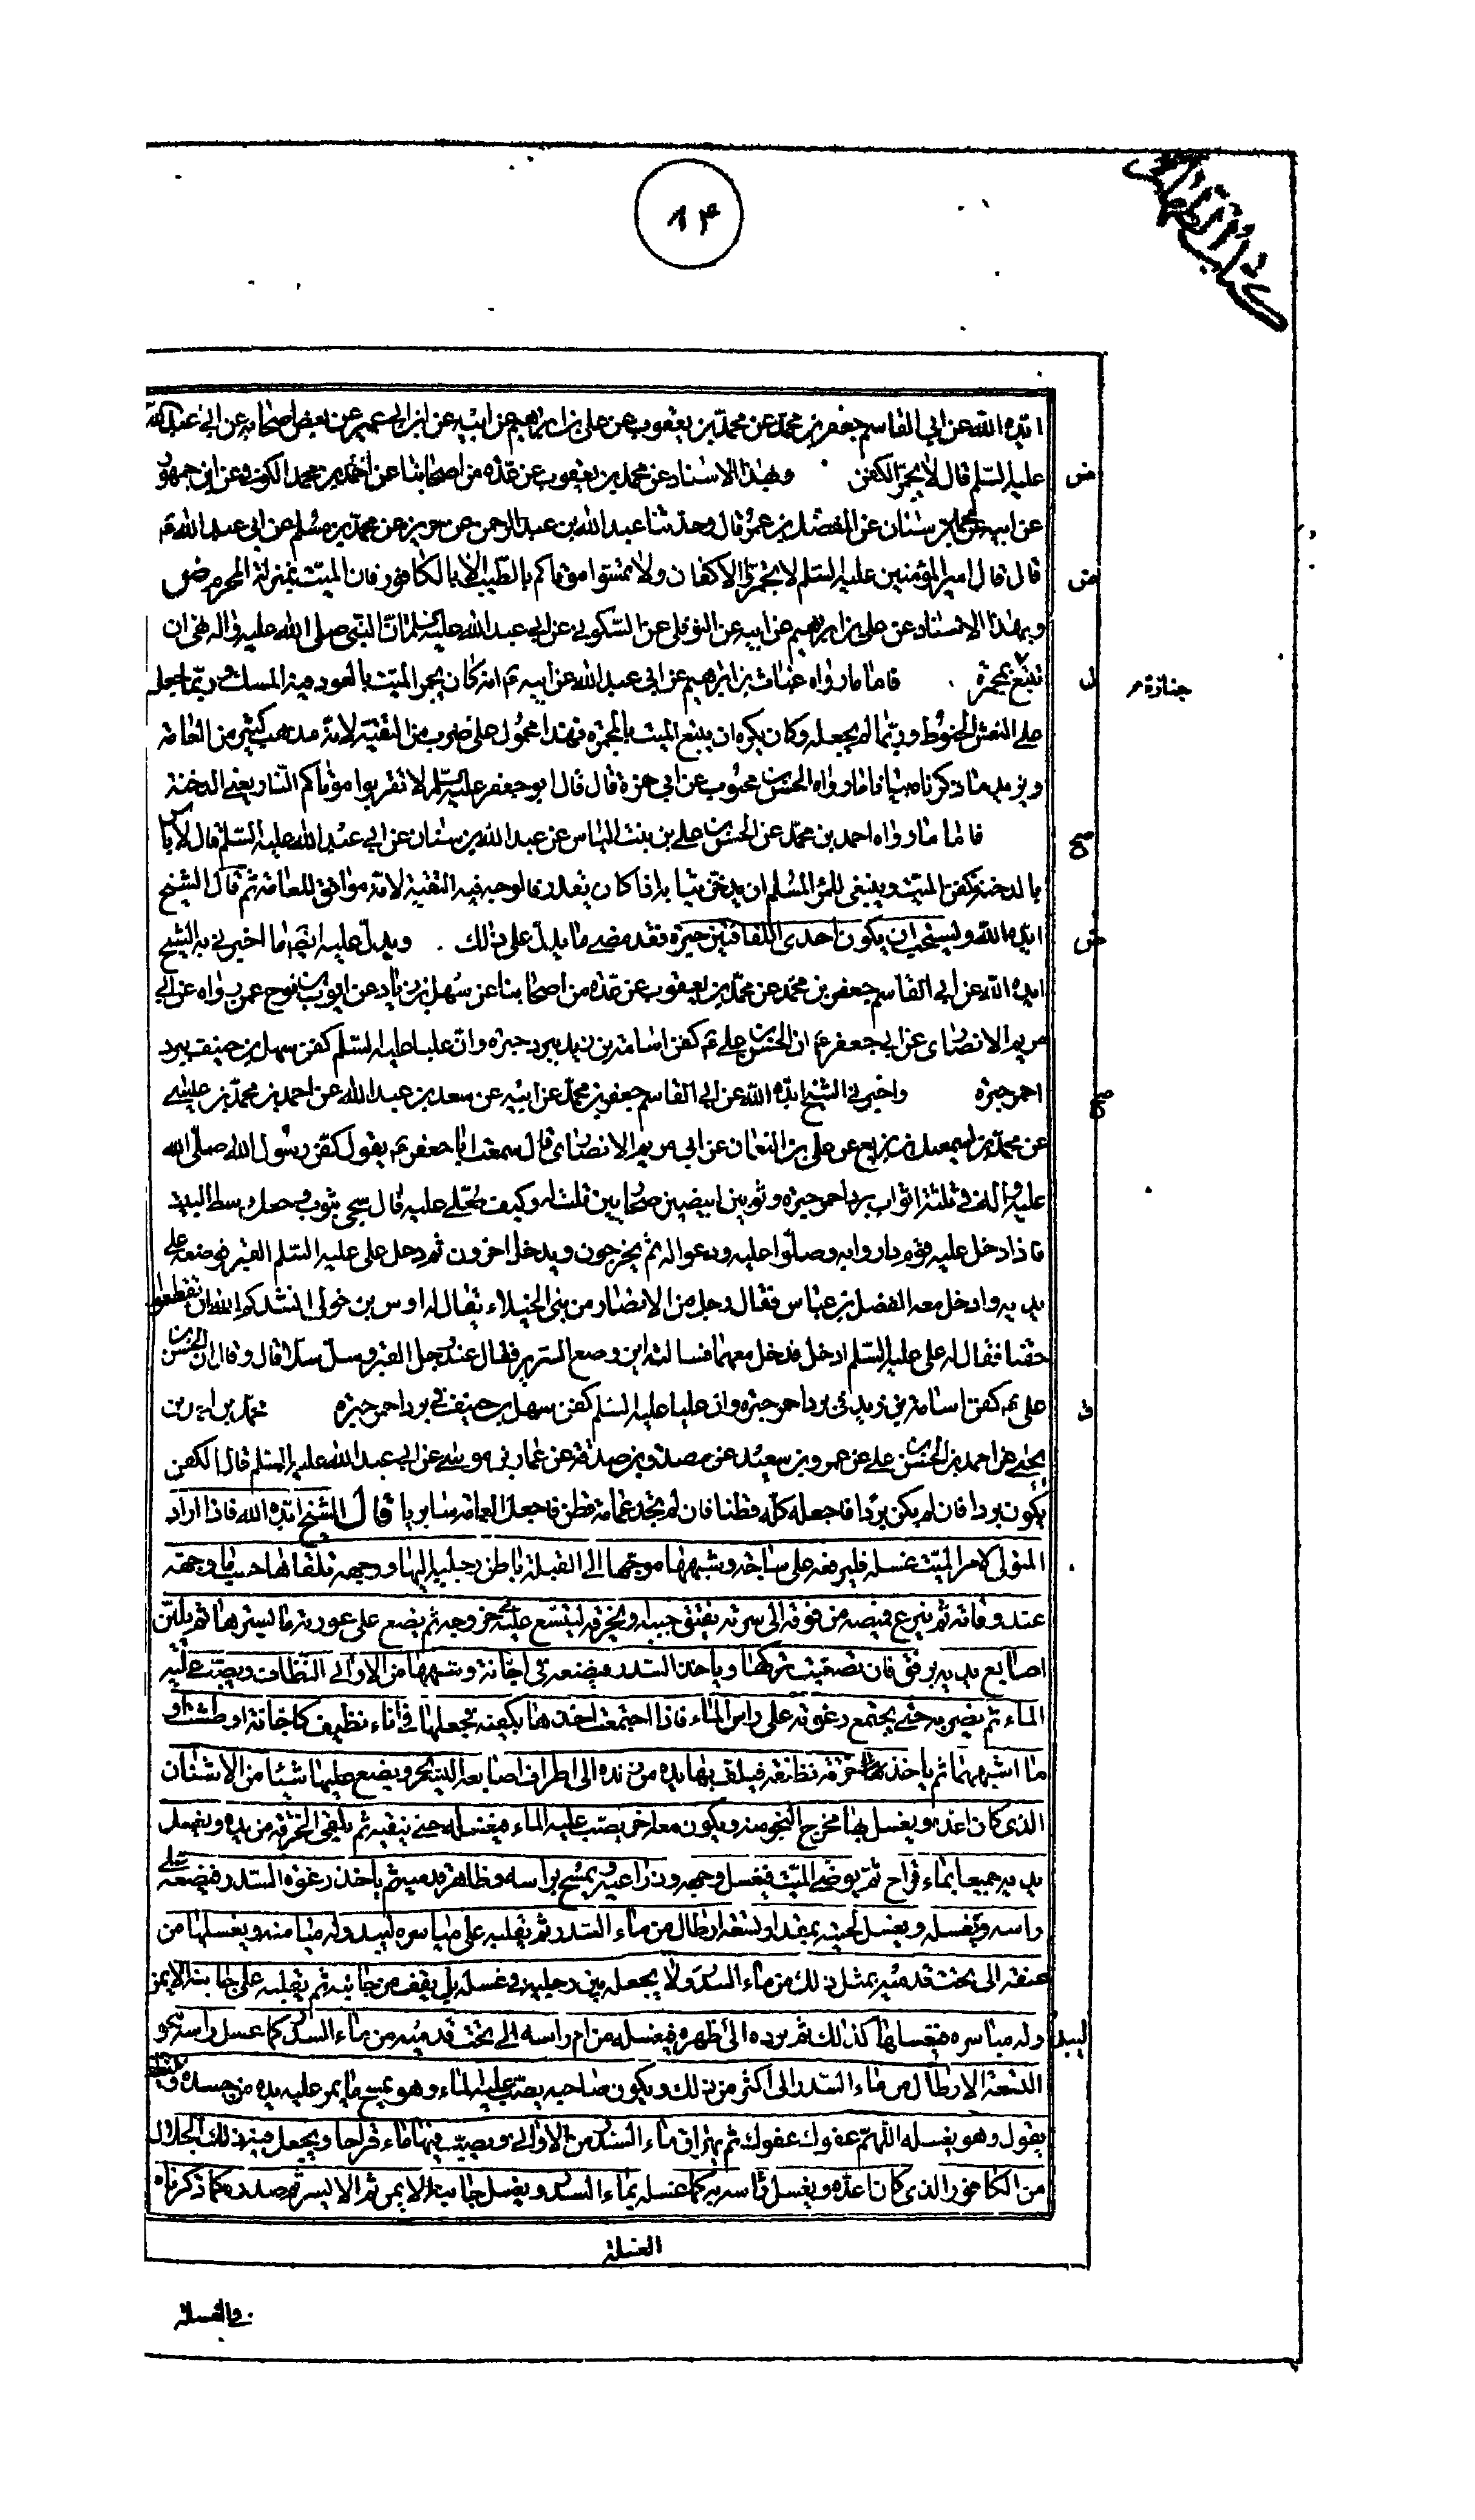 كتاب الطهارة
٨٤
ايده الله عن ابي القاسم جعفر بن محمد عن محمد بن يعقوب عن علي بن ابراهيم عن ابيه عن ابن ابي عمير عن بعض اصحابه عن ابي عبد الله
ض
عليه السلم قال لا يجمر الكفن وبهذا الاسناد عن محمد بن يعقوب عن عدة من اصحابنا عن احمد بن محمد الكوفي عن ابن جمهور
عن ابيه عن محمد بن سنان عن المفضل بن عمر قال وحدثنا عبد الله بن عبد الرحمن عن حريز عن محمد بن مسلم عن ابي عبد الله ع
ض
قال قال امير المؤمنين عليه السلم لا تجمروا الاكفان ولا تمسوا موتاكم بالطيب الا بالكافور فان الميت بمنزلة المحرم
وبهذا الاسناد عن علي بن ابراهيم عن ابيه عن النوفلي عن السكوني عن ابي عبد الله عليه السلم ان النبي صلى الله عليه واله نهى ان
جنازة
تتبع بمجمرة فاما ما رواه غياث بن ابرهيم عن ابي عبد الله عن ابيه ع انه كان يجمر الميت بالعود فيه المسك وربما جعل
على النعش الحنوط وربما لم يجعله وكان يكره ان يتبع الميت بالمجمرة فهذا محمول على ضرب من التقية لانه مذهب كثير من العامة
ويزيد ما ذكرناه بيانا ما رواه الحسن بن محبوب عن ابي حمزة قال قال ابو جعفر عليه السلم لا تقربوا موتاكم النار يعني الدخنة
صح
فاما ما رواه احمد بن محمد عن الحسن بن علي بن بنت الياس عن عبد الله بن سنان عن ابي عبد الله عليه السلم قال لا باس
بالدخنة كفن الميت وينبغي للمرء المسلم ان يدخن ثيابه اذا كان يقدر فالوجه فيه التقية لانه موافق للعامة ثم قال الشيخ
ض
ايده الله وليستحب ان يكون احدى اللفافتين حبرة فقد مضى ما يدل على ذلك ويدل عليه ايضا ما اخبرني به الشيخ
ايده الله عن ابي القاسم جعفر بن محمد عن محمد بن يعقوب عن عدة من اصحابنا عن سهل بن زياد عن ايوب بن نوح عمن رواه عن ابي
مريم الانصاري عن ابي جعفر ع ان الحسن بن علي ع كفن اسامة بن زيد ببرد حبرة وان عليا عليه السلم كفن سهل بن حنيف ببرد
صح
احمر حبرة واخبرني الشيخ ايده الله عن ابي القاسم جعفر بن محمد عن ابيه عن سعد بن عبد الله عن احمد بن محمد بن عيسى
عن محمد بن اسمعيل بن بزيع عن علي بن النعمان عن ابي مريم الانصاري قال سمعت ابا جعفر ع يقول كفن رسول الله صلى الله
عليه واله في ثلثة اثواب برد احمر حبرة وثوبين ابيضين صحاريين قلت له وكيف صلي عليه قال سجي بثوب وجعل وسط البيت
فاذا دخل عليه قوم داروا به وصلوا عليه ودعوا له ثم يخرجون ويدخل اخرون ثم دخل علي عليه السلم القبر فوضعه على
يديه وادخل معه الفضل بن عباس فقال رجل من الانصار من بني الخيلاء يقال له اوس بن خولي انشدكم الله ان تقطعوا
حقنا فقال له علي عليه السلم ادخل فدخل معهما فسالته اين وضع السرير فقال عند رجل القبر وسل سلا قال وقال ان الحسن بن
علي ع كفن اسامة بن زيد في برد احمر حبرة وان عليا عليه السلم كفن سهل بن حنيف في برد احمر حبرة محمد بن احمد بن
يحيى عن احمد بن الحسن بن علي عن عمرو بن سعيد عن مصدق بن صدقة عن عمار بن موسى عن ابي عبد الله عليه السلم قال الكفن
يكون بردا فان لم يكن بردا فاجعله كله قطنا فان لم تجد عمامة قطن فاجعل العمامة سابريا قال الشيخ ايده الله فاذا اراد
المتولي لامر الميت غسله فليرفعه على ساجة وشبهها موجها الى القبلة باطن رجليه اليها ووجهه تلقاءها حسب ما وجهه
عند وفاته ثم ينزع قميصه من فوقه الى سرته يفتق جيبه او يخرقه ليتسع عليه خروجه ثم يضع على عورته ما يسترها ثم يلين
اصابع يديه برفق فان تصعبت تركها وياخذ السدر فيضعه في اجانة وشبهها من الاواني النظاف ويصب عليه
الماء ثم يضربه حتى يجتمع رغوته على راس الماء فاذا اجتمعت اخذها بكفيه فجعلها في اناء نظيف كاجانة او طشت او
ما اشبههما ثم ياخذ خرقة نظيفة فيلف بها يده من زنده الى اطراف اصابعه اليسرى ويضع عليها شيئا من الاشنان
الذي كان اعده ويغسل بها مخرج النجو منه ويكون معه اخر يصب عليه الماء فيغسله حتى ينقيه ثم يلقي الخرقة من يده ويغسل
يديه جميعا بماء قراح ثم يوضي الميت فيغسل وجهه وذراعيه ويمسح براسه وظاهر قدميه ثم ياخذ رغوة السدر فيضعه على
راسه ويغسله ويغسل لحيته بمقدار تسعة ارطال من ماء السدر ثم يقلبه على مياسره ليبدو له ميامنه ويغسلها من
عنقه الى تحت قدميه بمثل ذلك من ماء السدر ولا يجعله بين رجليه في غسله بل يقف من جانبه ثم يقلبه على جانبه الايمن
ليبدو له مياسره فيغسلها كذلك ثم يرده الى ظهره فيغسله من ام راسه الى تحت قدميه من ماء السدر كما غسل راسه بنحو
التسعة الارطال من ماء السدر الى اكثر من ذلك ويكون صاحبه يصب عليه الماء وهو يمسح ما يمر عليه يده من جسده
يقول وهو يغسله اللهم عفوك عفوك ثم يهراق ماء السدر من الاواني ويصب فيها ماء قراحا ويجعل فيه ذلك الجلال
من الكافور الذي كان اعده ويغسل راسه به كما غسله بماء السدر ويغسل جانبه الايمن ثم الايسر ثم صدره كما ذكرناه
الغسلة
في الغسلة